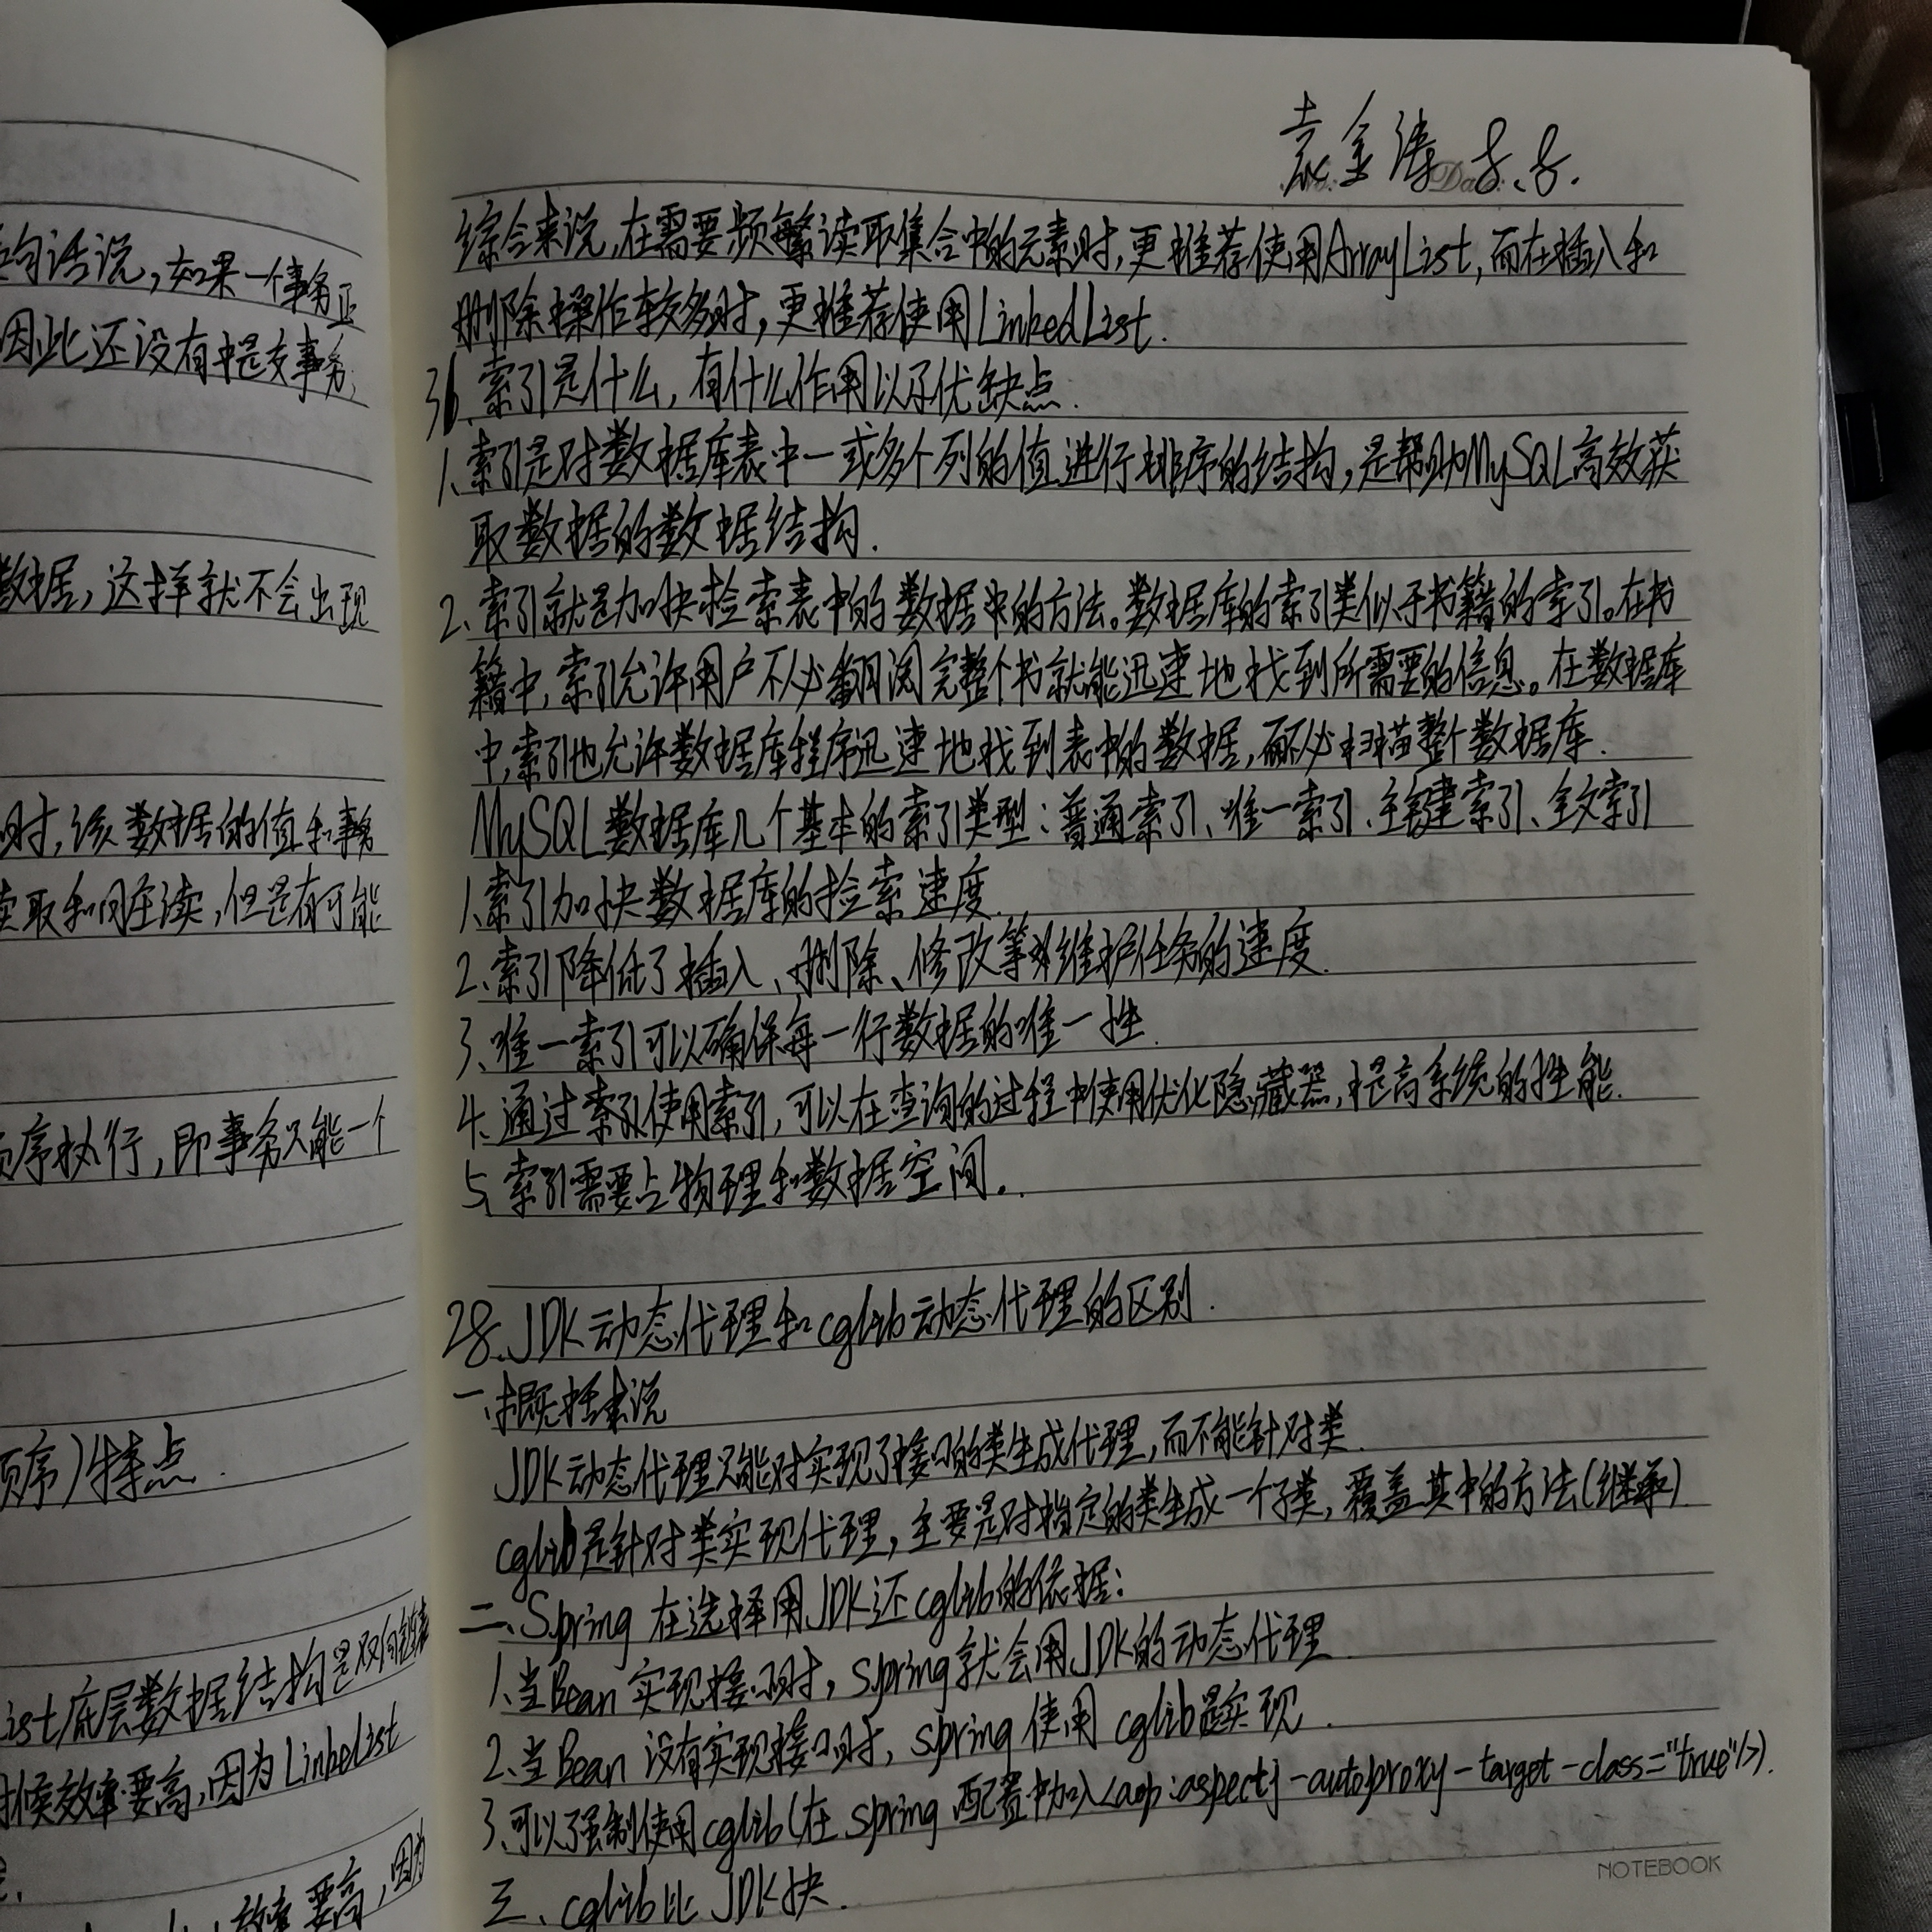 句话说,如果一个事务正
因此还没有提交事务,
数据,这样就不会出现
时,该数据的值和事务
读取和可重读,但是有可能
顺序执行,即事务只能一个
顺序)特点.
ist底层数据结构是双向链表
时候效率要高,因为LinkedList
效率要高,因为
袁金涛 Da 8.8.
综合来说,在需要频繁读取集合中的元素时,更推荐使用ArrayList,而在插入和
删除操作较多时,更推荐使用LinkedList.
36.索引是什么,有什么作用以及优缺点.
1、索引是对数据库表中一或多个列的值进行排序的结构,是帮助MySQL高效获
取数据的数据结构.
2、索引就是加快检索表中的数据的方法。数据库的索引类似于书籍的索引。在书
籍中,索引允许用户不必翻阅完整个书就能迅速地找到所需要的信息。在数据库
中,索引也允许数据库程序迅速地找到表中的数据,而不必扫描整个数据库.
MySQL数据库几个基本的索引类型:普通索引、唯一索引、主键索引、全文索引
1、索引加快数据库的检索速度.
2、索引降低了插入、删除、修改等维护任务的速度.
3、唯一索引可以确保每一行数据的唯一性.
4、通过索引使用索引,可以在查询的过程中使用优化隐藏器,提高系统的性能.
5、索引需要占物理和数据空间.
28、JDK动态代理和cglib动态代理的区别.
一、概括来说
JDK动态代理只能对实现了接口的类生成代理,而不能针对类.
cglib是针对类实现代理,主要是对指定的类生成一个子类,覆盖其中的方法(继承)
二、Spring在选择用JDK还cglib的依据:
1、当Bean实现接口时,Spring就会用JDK的动态代理
2、当Bean没有实现接口时,spring使用cglib是实现.
3、可以强制使用cglib(在spring配置中加入<aop:aspectj-autoproxy-target-class="true"/>).
三、cglib比JDK快.
NOTEBOOK